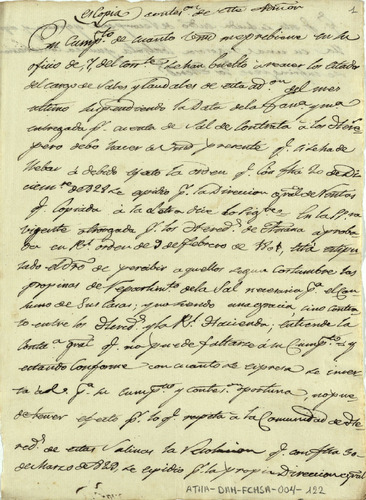 Copia contest.n de esta Admon 1
En Cump.to de cuanto Umd me prebiene en su
oficio de 7, del corr.te se han buelto a hacer los estados
del cargo de Sales y Caudales de esta ad.on del mes
ultimo suspendiendo la Data de la
entregada p.r cuenta de Sal de Contrata á los
pero debo hacer á Umd presente q.e
deber á debido efecto la orden q.e con fha 20 de Di-
ciem.re de 1828 se espidio p.r la Direccion gral de Rentas
q.e copiada á la letra dice lo sig.te En la
vigente otorgada p.r los Hered.s de Añana aproba-
da en R.l orden de 9 de Febrero de está estipu-
lado el dro de percibir aquellos segun costumbre las
propinas de repartim.to de la Sal necesaria p.a el con-
sumo de sus casas; y no siendo una gracia, sino contrato
entre los Hered.s y la R.l Hacienda; entiende la
Cont.a gral q.e no puede faltarse á su Cump.to y
estando conforme con cuanto espresa se inser-
ta á p.a su cump.to y contest.n oportuna, no pue-
de tener efecto p.r lo q.e respeta á la Comunidad de He-
red.s de estas Salinas la Resolucion q.e con fha 30
de Marzo de 1829 se espidio p.r la propia Direccion gral
ATHA-DAH-FCHSA-004-122